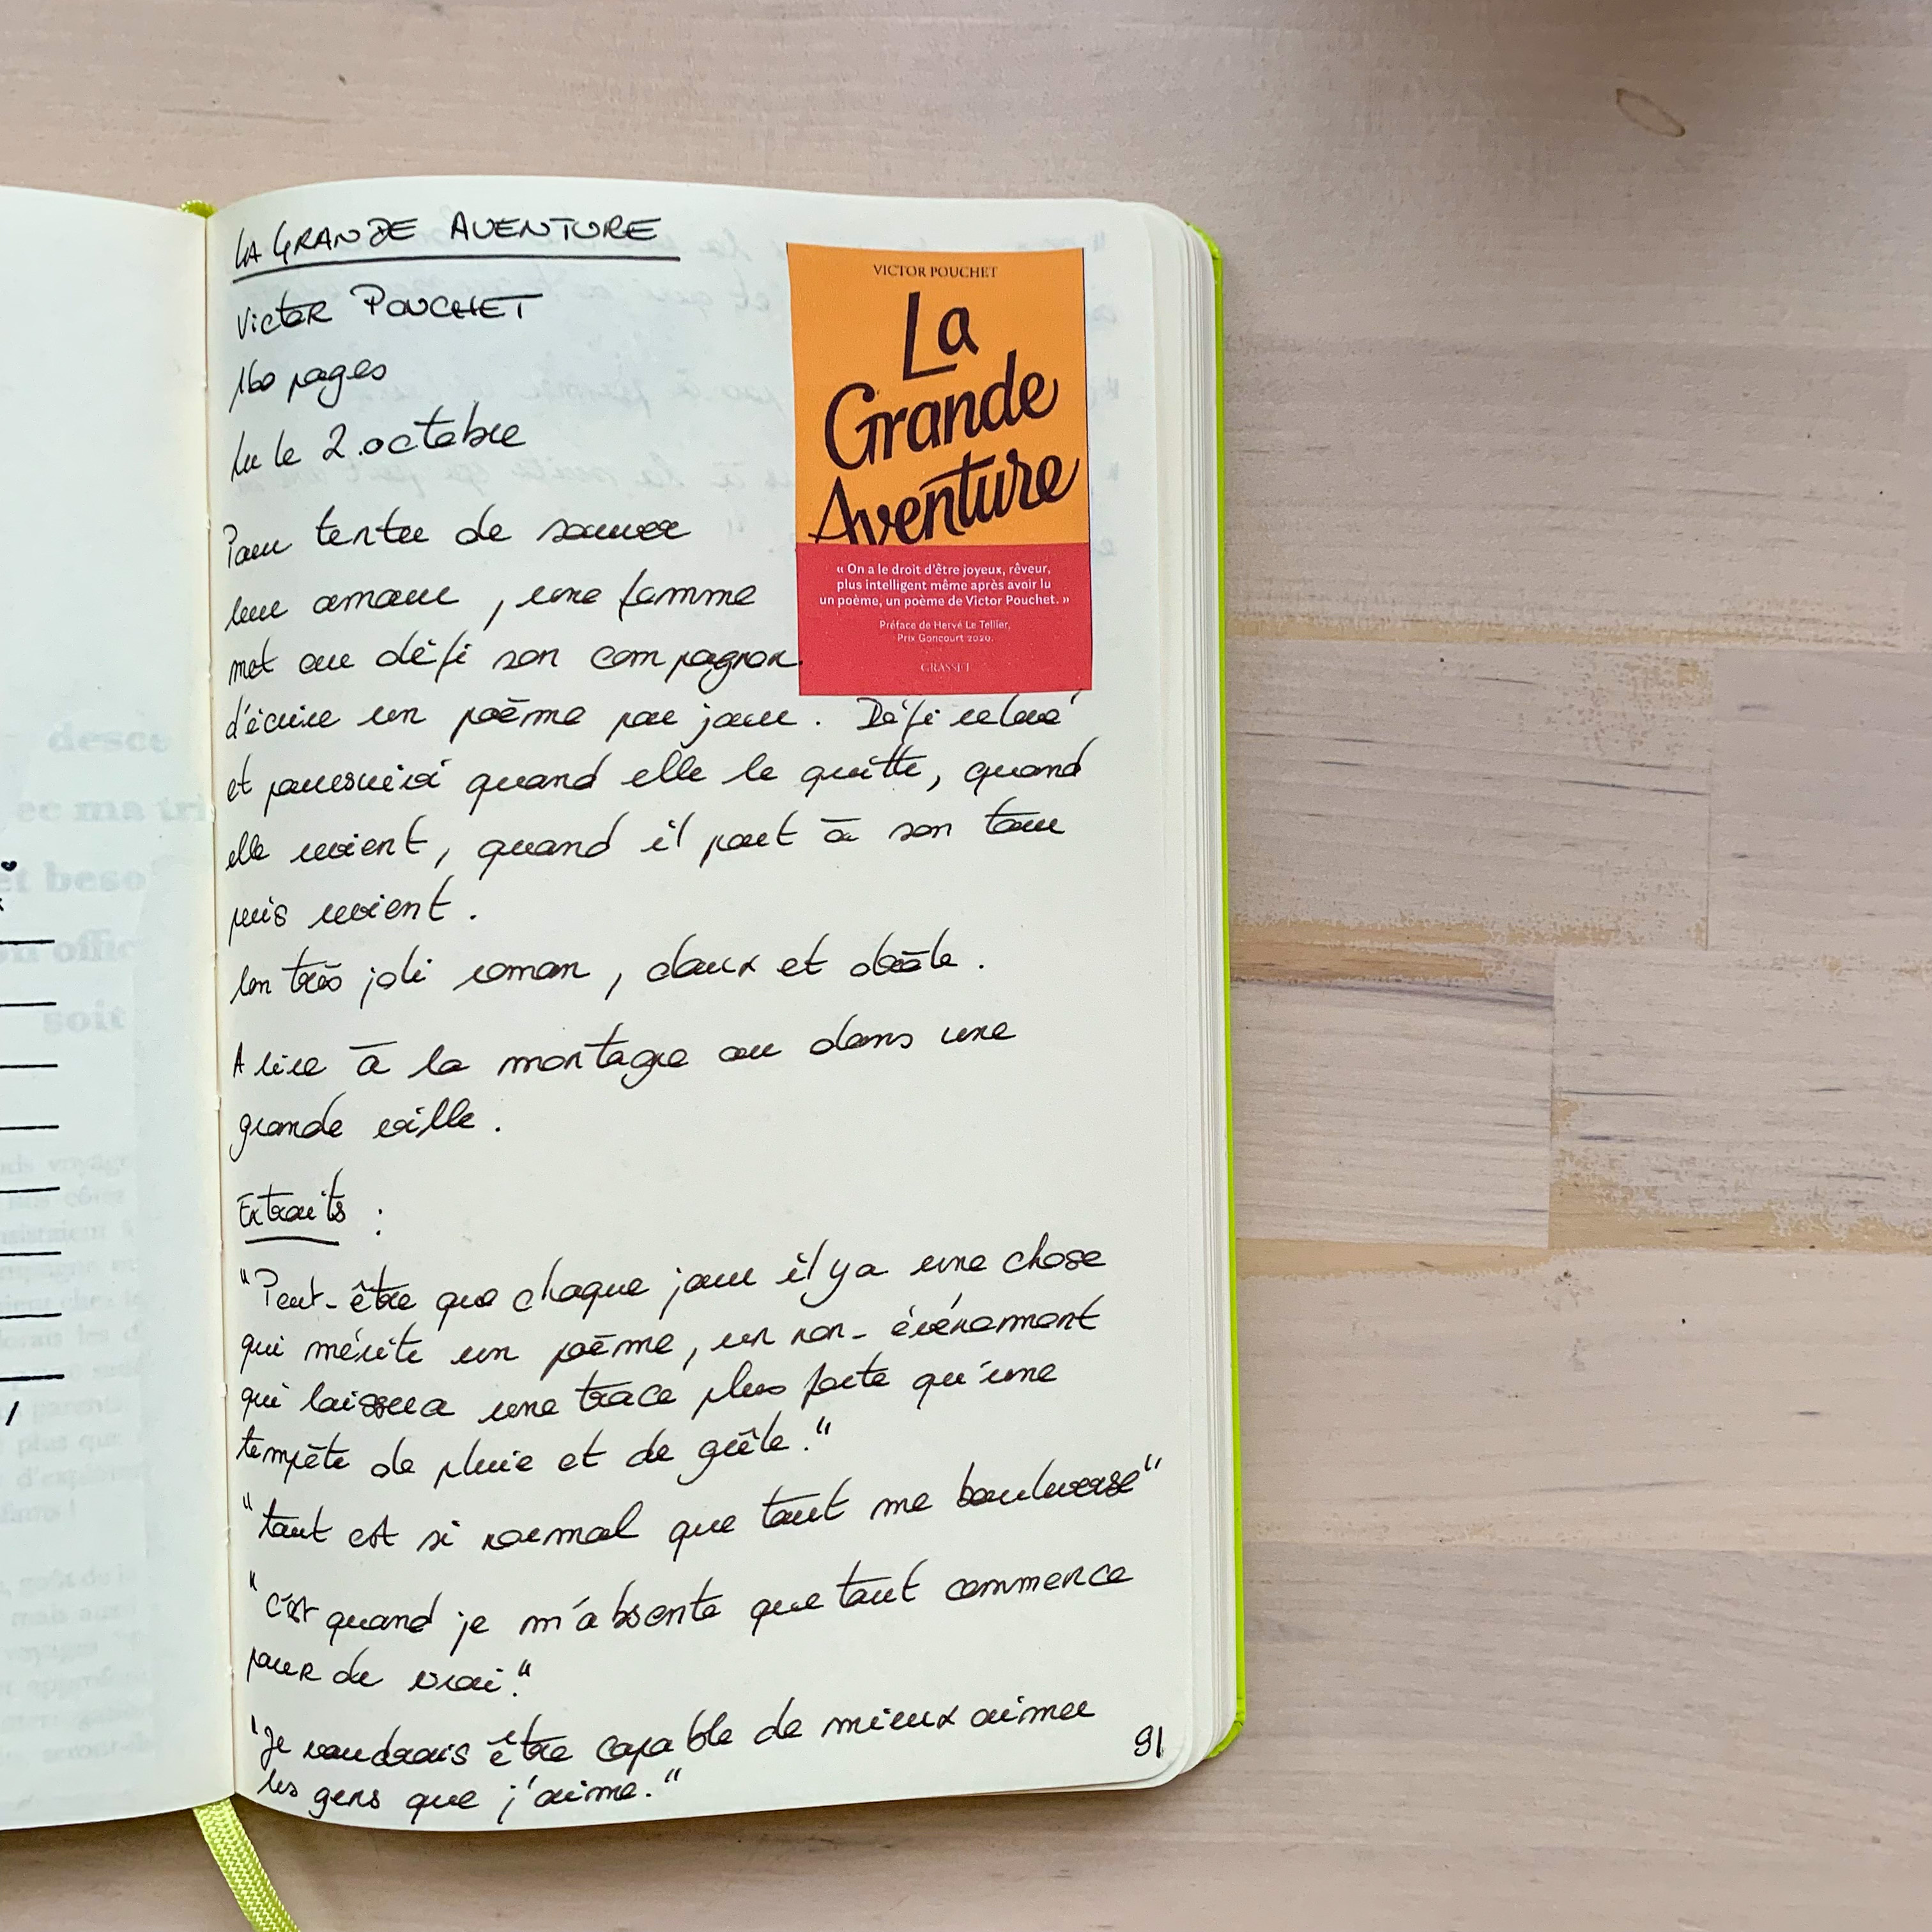 LA GRANDE AVENTURE
Victor POUCHET
160 pages
Lu le 2 octobre
Pour tenter de sauver
leur amour, une femme
met au défi son compagnon
d'écrire un poème par jour. Défi relevé
et poursuivi quand elle le quitte, quand
elle revient, quand il part à son tour
puis revient.
Un très joli roman, doux et drôle.
A lire à la montagne ou dans une
grande ville.
Extraits :
"Peut-être que chaque jour il y a une chose
qui mérite un poème, un non-événement
qui laissera une trace plus forte qu'une
tempête de pluie et de grêle."
"tout est si normal que tout me bouleverse"
"c'est quand je m'absente que tout commence
pour de vrai."
"Je voudrais être capable de mieux aimer
les gens que j'aime."
91
VICTOR POUCHET
La
Grande
Aventure
« On a le droit d'être joyeux, rêveur,
plus intelligent même après avoir lu
un poème, un poème de Victor Pouchet. »
Préface de Hervé Le Tellier,
Prix Goncourt 2020.
GRASSET